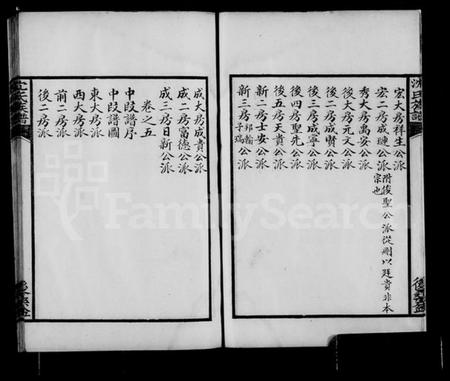 宏大房祥生公派
宏二房成璉公派 附後聖公派從剛以廷貴非本宗也
秀大房禹安公派
後大房元文公派
後二房成賢公派
後三房成寧公派
後四房聖先公派
後五房天貴公派
新二房士安公派
新三房邦翰子瑞公派
成大房成貴公派
成二房富德公派
成三房日新公派
卷之五
中段譜序
中段譜圖
東大房派
西大房派
前二房派
後二房派
沈氏族譜
FamilySearch